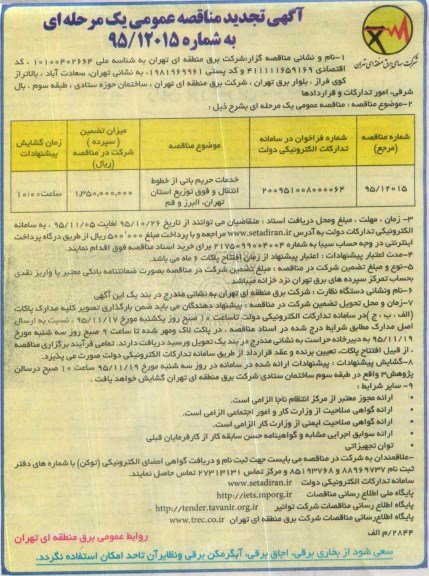 آگهی تجدید مناقصه عمومی یک مرحله ای
به شماره ۹۵/۱۲۰۱۵
شرکت سهامی برق منطقه ای تهران
۱-نام و نشانی مناقصه گزار:شرکت برق منطقه ای تهران به شناسه ملی ۱۰۱۰۰۴۰۲۶۶۴ ، کد
اقتصادی ۴۱۱۱۱۱۶۵۹۱۶۹ و کد پستی ۱۹۸۱۹۶۹۹۶۱، به نشانی تهران، سعادت آباد ، بالاتر از
کوی فراز ، بلوار برق تهران ، شرکت برق منطقه ای تهران ، ساختمان حوزه ستادی ، طبقه سوم ، بال
شرقی، امور تدارکات و قراردادها
۲-موضوع مناقصه : مناقصه عمومی یک مرحله ای بشرح ذیل :
شماره مناقصه (مرجع)
شماره فراخوان در سامانه تدارکات الکترونیکی دولت
موضوع مناقصه
میزان تضمین (سپرده) شرکت در مناقصه (ریال)
زمان گشایش پیشنهادات
۹۵/۱۲۰۱۵
۲۰۰۹۵۱۰۰۸۰۰۰۰۶۴
خدمات حریم بانی از خطوط انتقال و فوق توزیع استان تهران، البرز و قم
۱,۳۵۰,۰۰۰,۰۰۰
ساعت ۱۰:۰۰
۳- زمان ، مهلت ، مبلغ ومحل دریافت اسناد : متقاضیان می توانند از تاریخ ۹۵/۱۰/۲۶ لغایت ۹۵/۱۱/۰۵ ، به سامانه
الکترونیکی تدارکات دولت به آدرس www.setadiran.ir مراجعه و با پرداخت مبلغ ۵۰۰٬۰۰۰ ریال از طریق درگاه پرداخت
اینترنتی در وجه حساب سیبا به شماره ۲۱۷۵۰۹۹۰۰۴۰۰۴ برای خرید اسناد مناقصه فوق اقدام نمایند.
۴-مدت اعتبار پیشنهادات : اعتبار پیشنهاد از زمان افتتاح پاکات ۶ ماه می باشد.
۵-نوع و مبلغ تضمین شرکت در مناقصه : مبلغ تضمین شرکت در مناقصه بصورت ضمانتنامه بانکی معتبر یا واریز نقدی
بحساب تمرکز سپرده های برق تهران نزد خزانه میباشد .
۶-نام ونشانی دستگاه نظارت : شرکت برق منطقه ای تهران به نشانی مندرج در بند یک این آگهی
۷-زمان و محل تحویل تضمین شرکت در مناقصه : پیشنهاد دهندگان می باید ضمن بارگذاری تصویر کلیه مدارک پاکات
(الف ، ب ، ج )در سامانه تدارکات الکترونیکی دولت تاساعت ۱۰ صبح روز یکشنبه مورخ ۹۵/۱۱/۱۷ ، نسبت به ارسال
اصل مدارک مطابق شرایط درج شده در اسناد مناقصه ، در پاکت لاک ومهر شده تا ساعت ۹ صبح روز سه شنبه مورخ
۹۵/۱۱/۱۹ به دبیرخانه حراست به نشانی مندرج در بند یک تحویل ورسید دریافت دارند. تمامی فرآیند برگزاری مناقصه
، از قبیل افتتاح پاکات، تعیین برنده و عقد قرارداد از طریق سامانه تدارکات الکترونیکی دولت صورت می پذیرد.
۸-گشایش پیشنهادات : پیشنهادات ارائه شده در سامانه در روز سه شنبه مورخ ۹۵/۱۱/۱۹ ساعت ۱۰ صبح درسالن
پژوهش۳ واقع در طبقه سوم ساختمان ستادی شرکت برق منطقه ای تهران گشایش خواهد یافت .
۹- سایر شرایط :
• ارائه مجوز معتبر از مرکز انتظام ناجا الزامی است.
• ارائه گواهی صلاحیت از وزارت کار و امور اجتماعی الزامی است.
• ارائه گواهی صلاحیت ایمنی از وزارت کار الزامی است.
• ارائه سوابق اجرایی مشابه و گواهینامه حسن سابقه کار از کارفرمایان قبلی
• توان تجهیزاتی
-علاقمندان به شرکت در مناقصه می بایست جهت ثبت نام و دریافت گواهی امضای الکترونیکی (توکن) با شماره های دفتر
ثبت نام ۸۸۹۶۹۷۳۷ و ۸۵۱۹۳۷۶۸ و مرکز تماس ۲۷۳۱۳۱۳۱ تماس حاصل نمایند.
سامانه تدارکات الکترونیکی دولت www.setadiran.ir
پایگاه ملی اطلاع رسانی مناقصات http://iets.mporg.ir
پایگاه اطلاع رسانی مناقصات شرکت توانیر http://tender.tavanir.org.ir
پایگاه اطلاع‌رسانی مناقصات شرکت برق منطقه ای تهران www.trec.co.ir
۲۸۴۴/م الف
روابط عمومی برق منطقه ای تهران
سعی شود از بخاری برقی، اجاق برقی، آبگرمکن برقی ونظایرآن تاحد امکان استفاده نگردد.